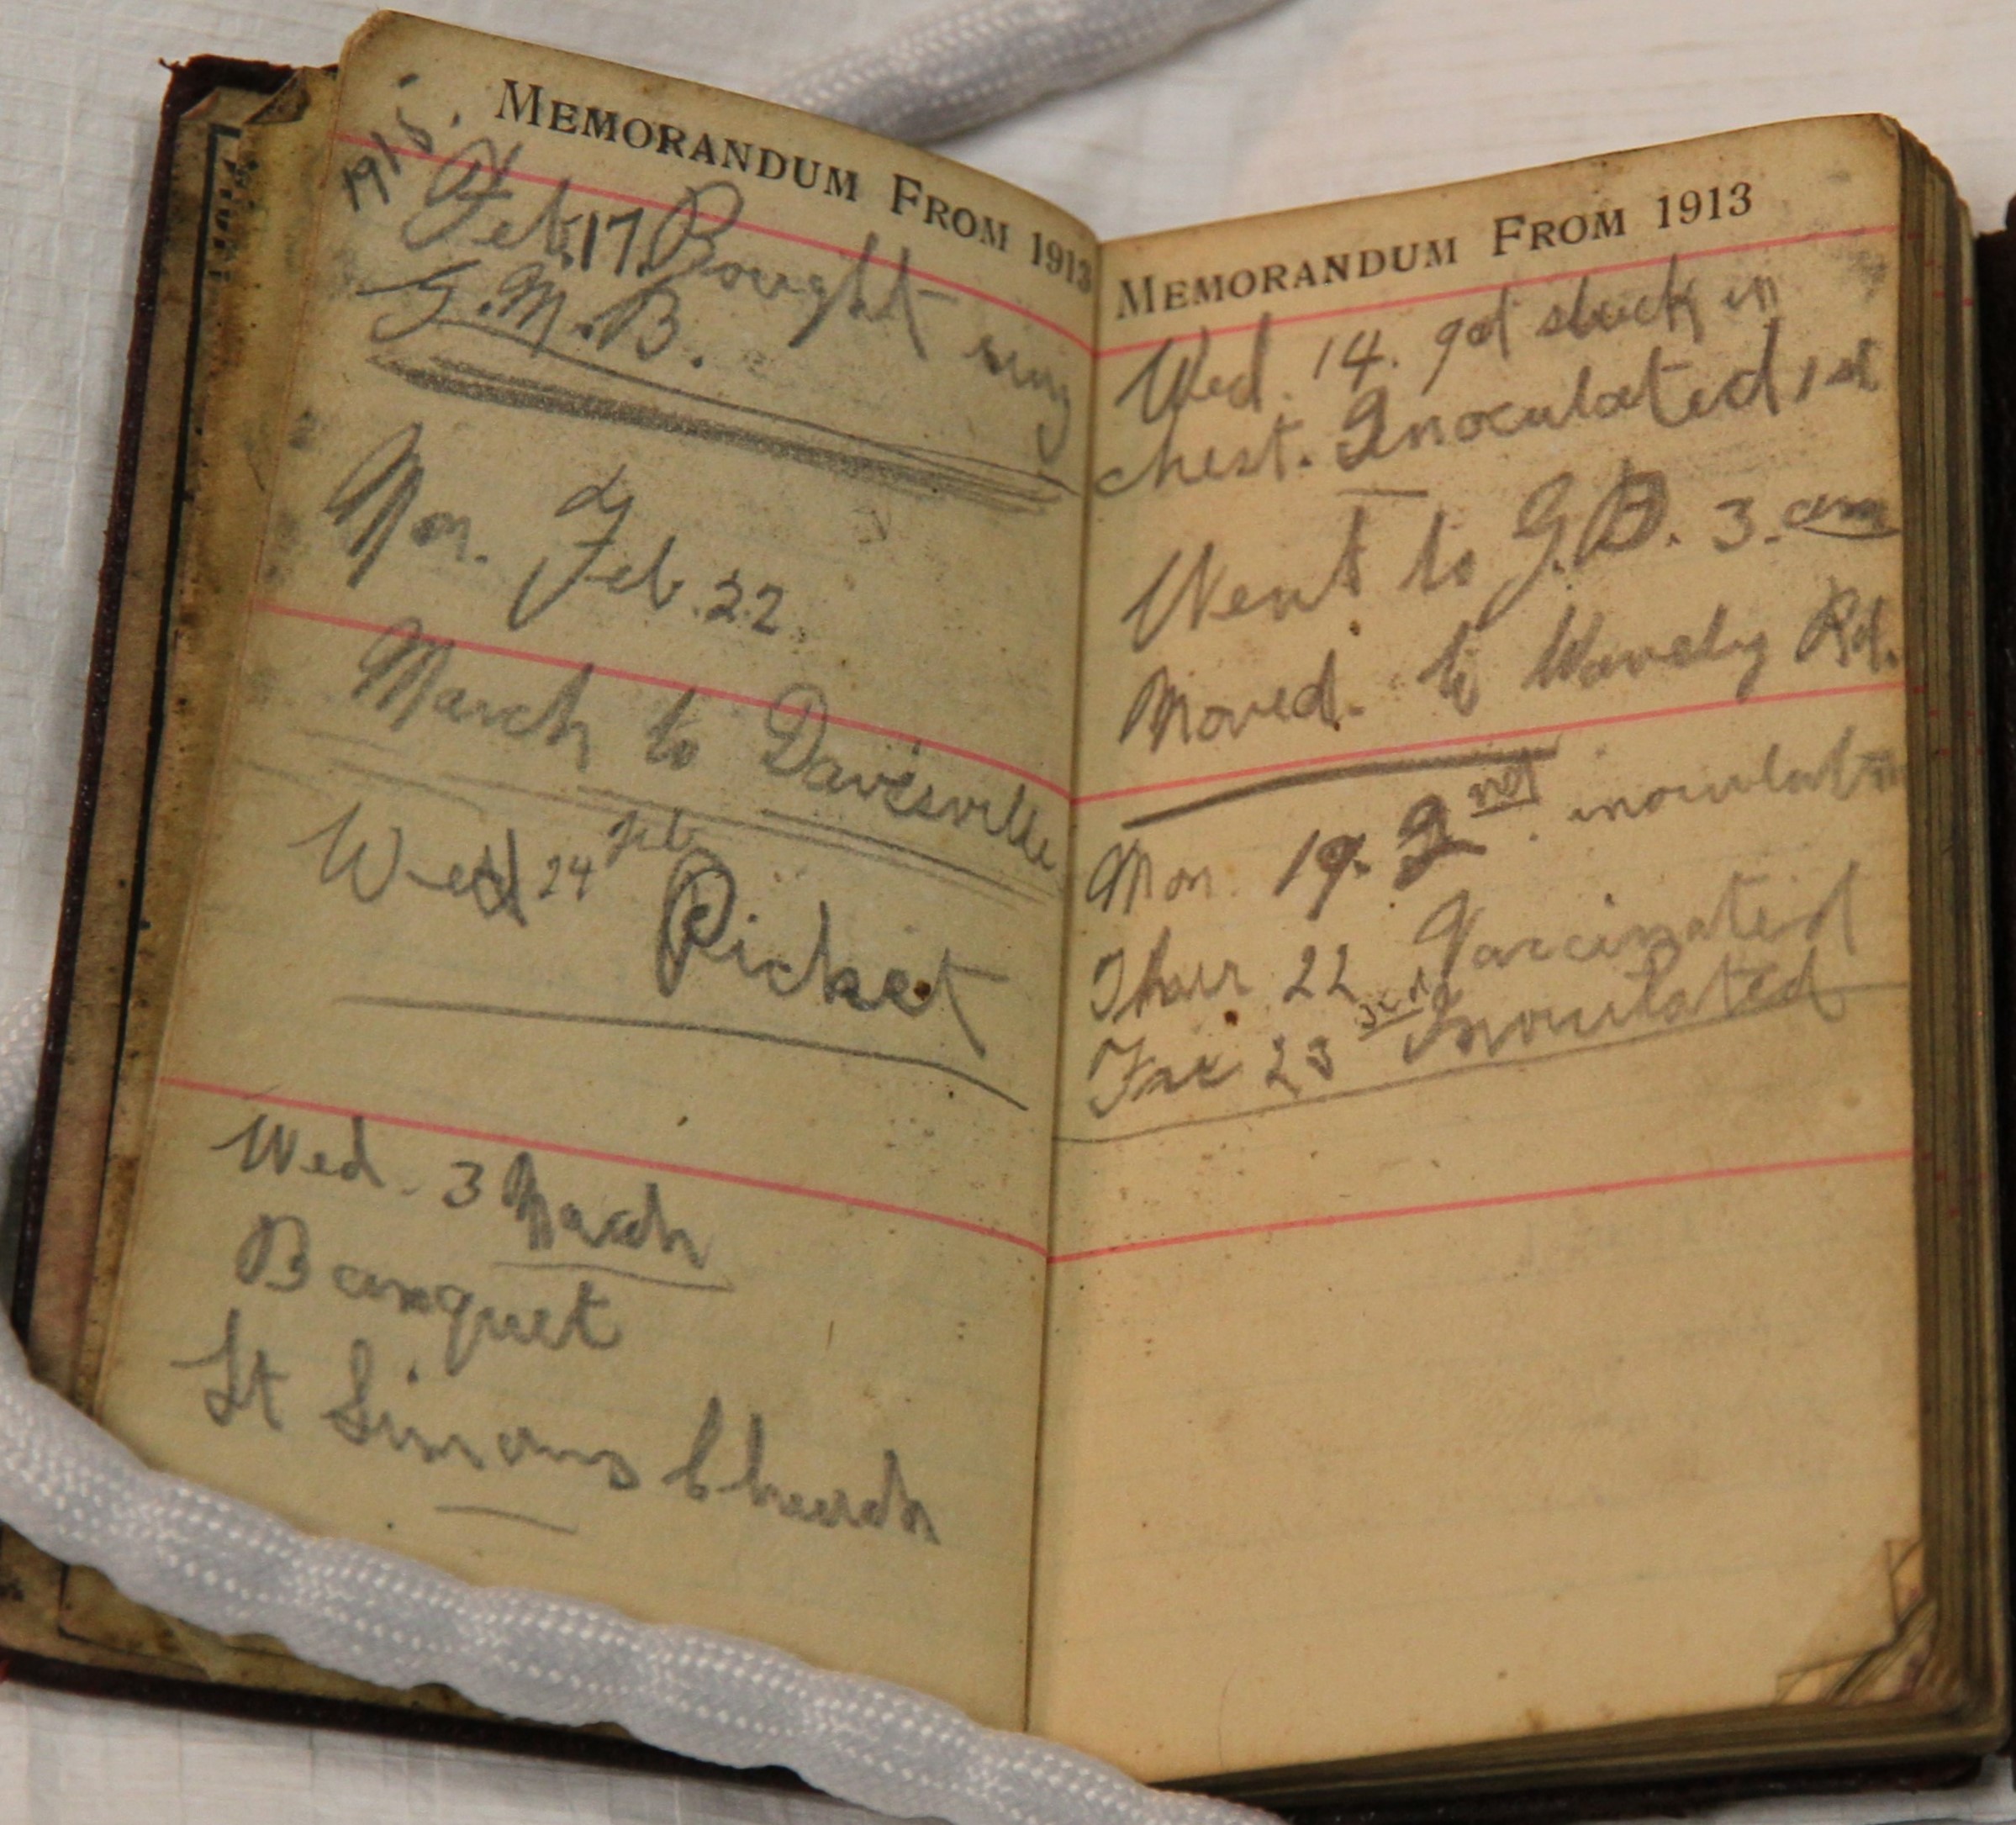 MEMORANDUM FROM 1913
1915.
Feb. 17. Bought ring
G.M.B.
Mon. Feb. 22.
March to Davesville
Wed 24 Feb Picket
Wed. 3 March
Banquet
St Simons Church
MEMORANDUM FROM 1913
Wed. 14. got stuck in
chest. Inoculated 1st
Went to G.B. 3. am
Moved. to Wavely Rd.
Mon. 19. 2nd. inoculation
Thur 22 Vaccinated
23 3rd Inoculated